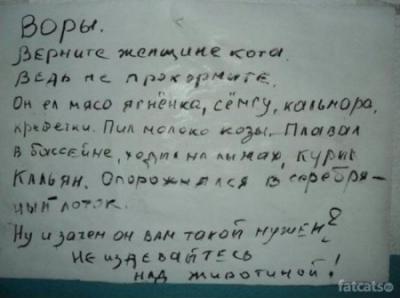 Воры.
Верните женщине кота.
Ведь не прокормите.
Он ел мясо ягнёнка, сёмгу, кальмара,
креветки. Пил молоко козы. Плавал
в бассейне, ходил на лыжах, курил
Кальян. Опорожнялся в серебря-
ный лоток.
Ну и зачем он вам такой нужен?
Не издевайтесь
над животиной!
fatcats